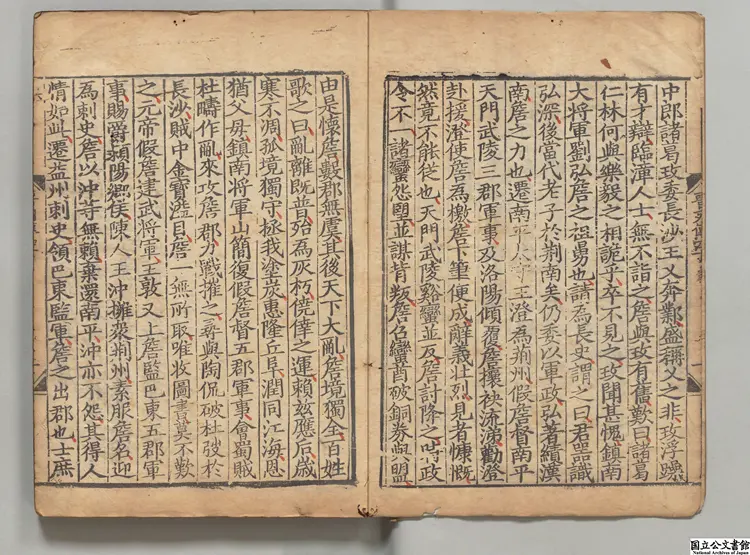 中郎諸葛玫委長沙王乂奔鄴盛稱乂之非玫浮躁
有才辯臨漳人士無不詣之詹與玫有舊歎曰諸葛
仁林何與樂毅之相詭乎卒不見之玫聞甚愧鎮南
大將軍劉弘詹之祖舅也請為長史謂之曰君器識
弘深後當代老子於荊南矣仍委以軍政弘著績漢
南詹之力也遷南平太守王澄為荊州假詹督南平
天門武陵三郡軍事及洛陽傾覆詹攘袂流涕勸澄
赴援澄使詹為檄詹下筆便成辭義壯烈見者慷慨
然竟不能從也天門武陵谿蠻並反詹討降之時政
令不一諸蠻怨望並謀背叛詹召蠻酋破銅券與盟
由是懷詹數郡無虞其後天下大亂詹境獨全百姓
歌之曰亂離既普殆為灰朽僥倖之運賴茲應后歲
寒不凋孤境獨守拯我塗炭惠隆丘阜潤同江海恩
猶父母鎮南將軍山簡復假詹督五郡軍事會蜀賊
杜疇作亂來攻詹郡力戰摧之尋與陶侃破杜弢於
長沙賊中金寶溢目詹一無所取唯收圖書莫不歎
之元帝假詹建武將軍王敦又上詹監巴東五郡軍
事賜爵潁陽鄉侯陳人王沖擁衆荊州素服詹名迎
為刺史詹以沖等無賴棄還南平沖亦不怨其得人
情如此遷益州刺史領巴東監軍詹之出郡也士庶
国立公文書館
National Archives of Japan